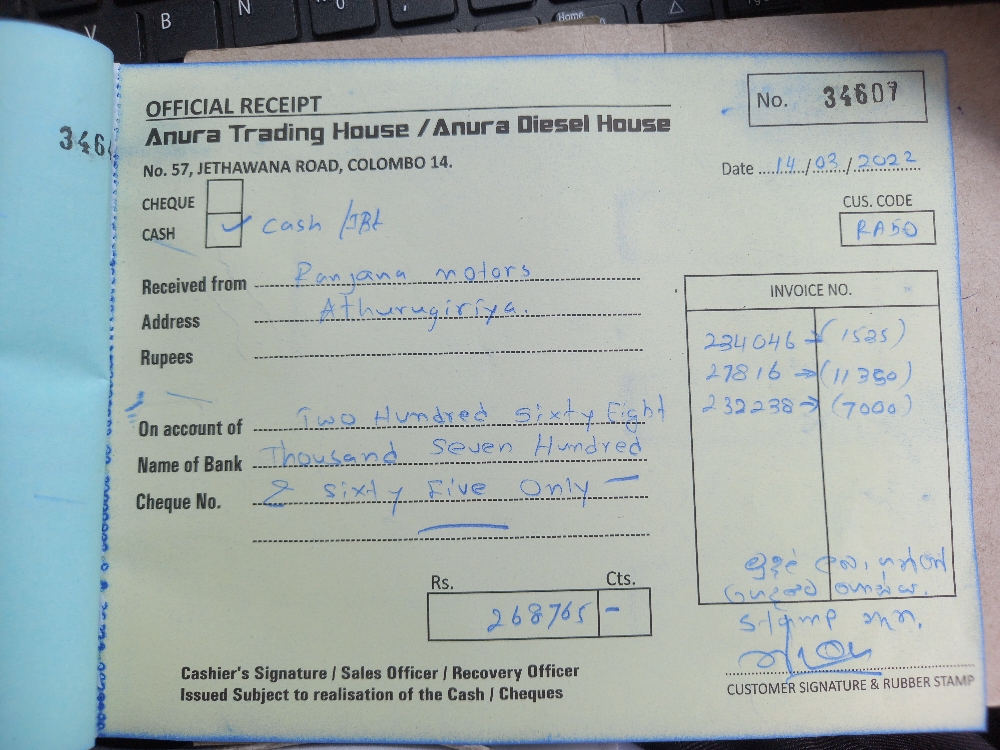 Home
V
B
N
346
OFFICIAL RECEIPT
No. 34607
Anura Trading House / Anura Diesel House
No. 57, JETHAWANA ROAD, COLOMBO 14.
Date 14/03/2022
CHEQUE
CASH ✓ Cash /
CUS. CODE
RA50
Received from Ranjana motors
Address Athurugiriya.
Rupees
INVOICE NO.
234046 → (1535)
27816 → (11350)
232238 → (7000)
On account of Two Hundred Sixty Eight
Name of Bank Thousand Seven Hundred
Cheque No. & Sixty Five Only
Rs. Cts.
268765 -
Stamp
Cashier's Signature / Sales Officer / Recovery Officer
Issued Subject to realisation of the Cash / Cheques
CUSTOMER SIGNATURE & RUBBER STAMP